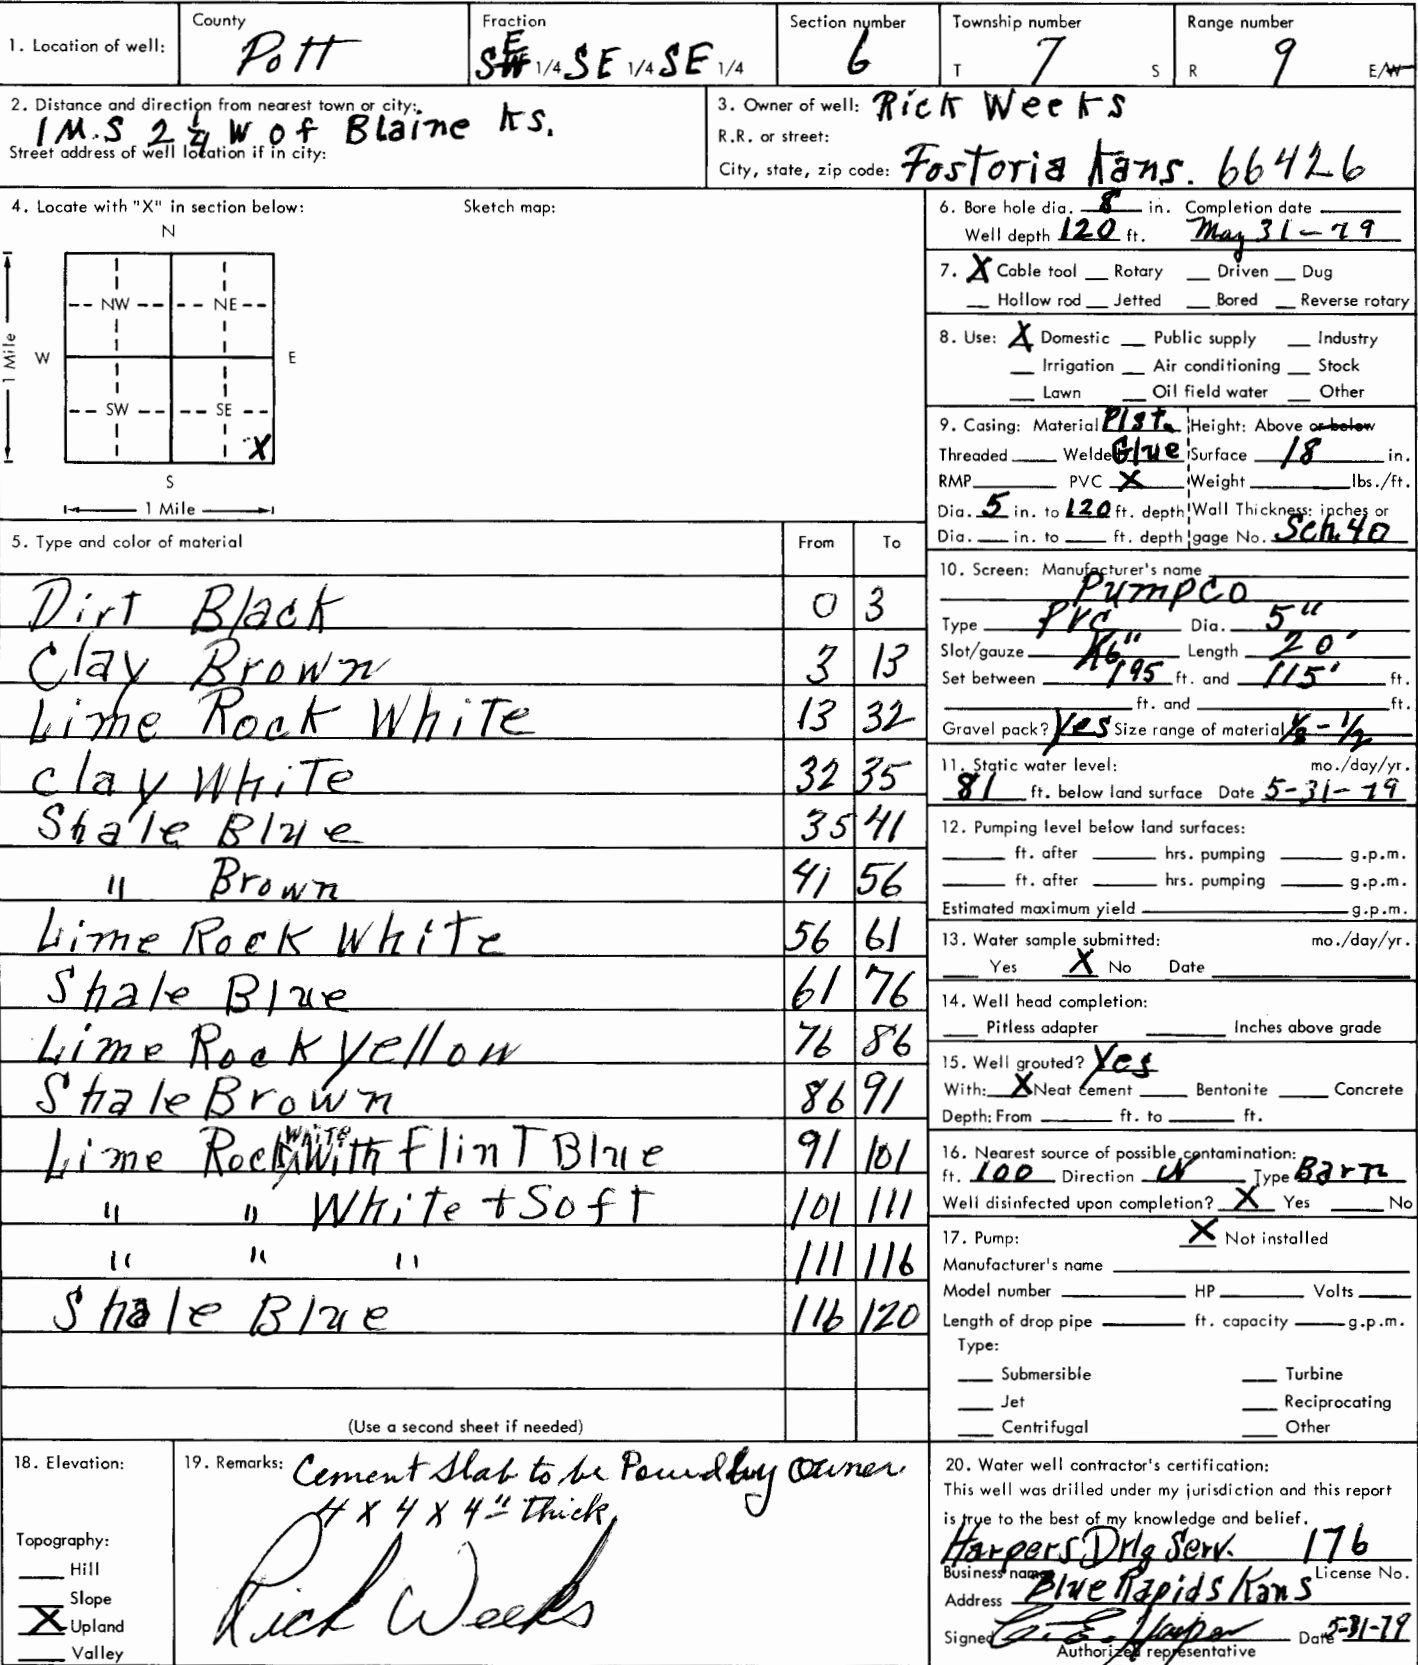 1. Location of well: County Pott Fraction SE 1/4 SE 1/4 SE 1/4 Section number 6 Township number T 7 S Range number R 9 E/W
2. Distance and direction from nearest town or city: 1 M.S 2 1/4 W of Blaine Ks.
Street address of well location if in city:
3. Owner of well: Rick Weeks
R.R. or street:
City, state, zip code: Fostoria Kans. 66426
4. Locate with "X" in section below: Sketch map:
N
NW NE
W E
1 Mile
SW SE
X
S
1 Mile
5. Type and color of material From To
Dirt Black 0 3
Clay Brown 3 13
Lime Rock White 13 32
Clay White 32 35
Shale Blue 35 41
" Brown 41 56
Lime Rock White 56 61
Shale Blue 61 76
Lime Rock Yellow 76 86
Shale Brown 86 91
Lime Rock White With Flint Blue 91 101
" " White + Soft 101 111
" " " 111 116
Shale Blue 116 120
(Use a second sheet if needed)
6. Bore hole dia. 8 in. Completion date
Well depth 120 ft. May 31-79
7. X Cable tool Rotary Driven Dug
Hollow rod Jetted Bored Reverse rotary
8. Use: X Domestic Public supply Industry
Irrigation Air conditioning Stock
Lawn Oil field water Other
9. Casing: Material Plst. Height: Above or below
Threaded Welded Glue Surface 18 in.
RMP PVC X Weight lbs./ft.
Dia. 5 in. to 120 ft. depth Wall Thickness: inches or
Dia. in. to ft. depth gage No. Sch. 40
10. Screen: Manufacturer's name
Pumpco
Type PVC Dia. 5"
Slot/gauze Length 20'
Set between ft. and 115' ft.
ft. and ft.
Gravel pack? Yes Size range of material 1/8 - 1/2
11. Static water level: mo./day/yr.
81 ft. below land surface Date 5-31-79
12. Pumping level below land surfaces:
ft. after hrs. pumping g.p.m.
ft. after hrs. pumping g.p.m.
Estimated maximum yield g.p.m.
13. Water sample submitted: mo./day/yr.
Yes X No Date
14. Well head completion:
Pitless adapter Inches above grade
15. Well grouted? Yes
With: X Neat cement Bentonite Concrete
Depth: From ft. to ft.
16. Nearest source of possible contamination:
ft. 100 Direction N Type Barn
Well disinfected upon completion? X Yes No
17. Pump: X Not installed
Manufacturer's name
Model number HP Volts
Length of drop pipe ft. capacity g.p.m.
Type:
Submersible Turbine
Jet Reciprocating
Centrifugal Other
18. Elevation:
Topography:
Hill
Slope
X Upland
Valley
19. Remarks: Cement Slab to be Pourd by owner
4 X 4 X 4" Thick
Rick Weeks
20. Water well contractor's certification:
This well was drilled under my jurisdiction and this report
is true to the best of my knowledge and belief.
Harpers Drlg Serv. 176
Business name License No.
Address Blue Rapids Kans
Signed C. E. Harper Date 5-31-79
Authorized representative